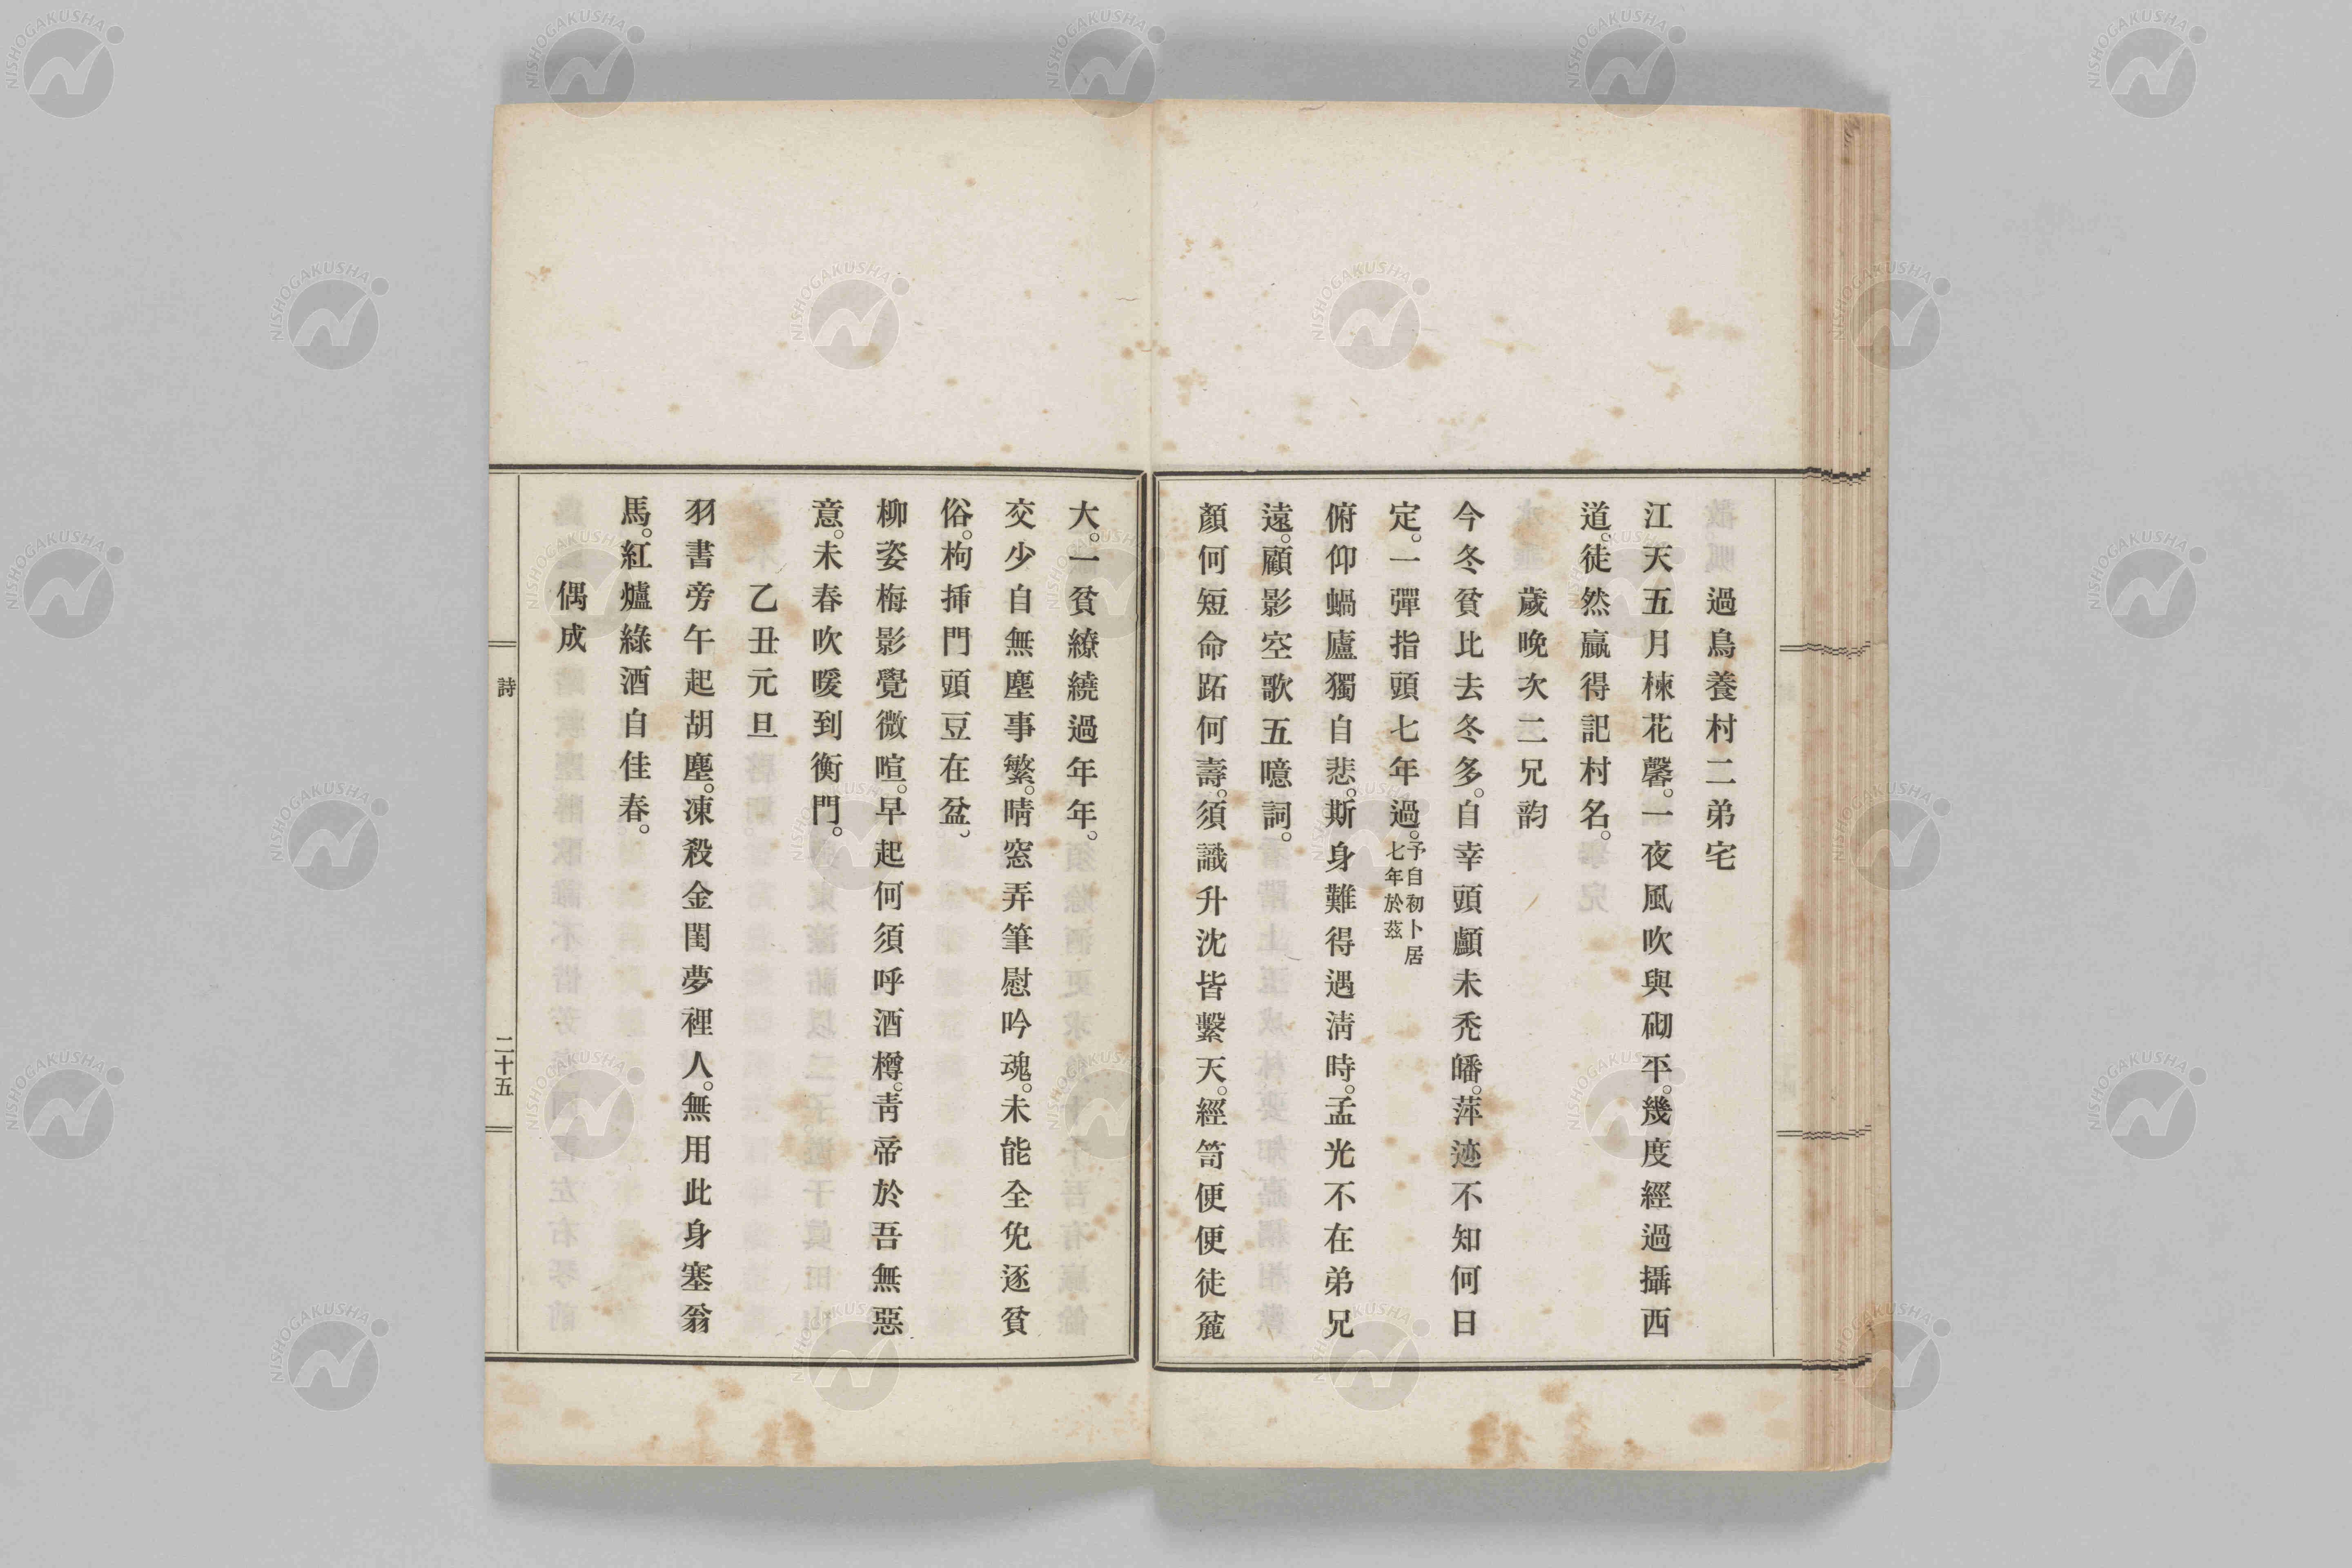 過鳥養村二弟宅
江天五月楝花馨。一夜風吹與砌平。幾度經過攝西
道。徒然贏得記村名。
歲晚次二兄韵
今冬貧比去冬多。自幸頭顱未禿皤。萍迹不知何日
定。一彈指頭七年過。予自初卜居
七年於茲
俯仰蝸廬獨自悲。斯身難得遇淸時。孟光不在弟兄
遠。顧影空歌五噫詞。
顏何短命跖何壽。須識升沈皆繫天。經笥便便徒麄
大。一貧繚繞過年年。
交少自無塵事繁。晴窓弄筆慰吟魂。未能全免逐貧
俗。枸揷門頭豆在盆。
柳姿梅影覺微喧。早起何須呼酒樽。靑帝於吾無惡
意。未春吹暖到衡門。
乙丑元旦
羽書旁午起胡塵。凍殺金閨夢裡人。無用此身塞翁
馬。紅爐綠酒自佳春。
偶成
詩
二十五
NISHOGAKUSHA